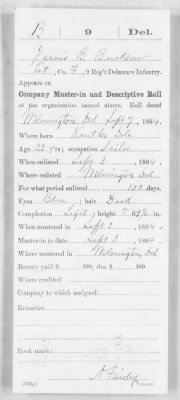 B 9 Del.
Jarvis B.
Pvt, Co. F, 9 Reg't Delaware Infantry.
Appears on
Company Muster-in and Descriptive Roll
of the organization named above. Roll dated
Wilmington Del Sept 7, 1864.
Where born Kent Co Dela
Age 22 y'rs; occupation Sailor
When enlisted Sept 3, 1864.
Where enlisted Wilmington Del
For what period enlisted 100 days.
Eyes Blue; hair Dark
Complexion Light; height 5 ft. in.
When mustered in Sept 3, 1864.
Muster-in to date Sept 3, 1864.
Where mustered in Wilmington Del
Bounty paid $ 100; due $ 100
Where credited
Company to which assigned
Remarks:
Book mark: